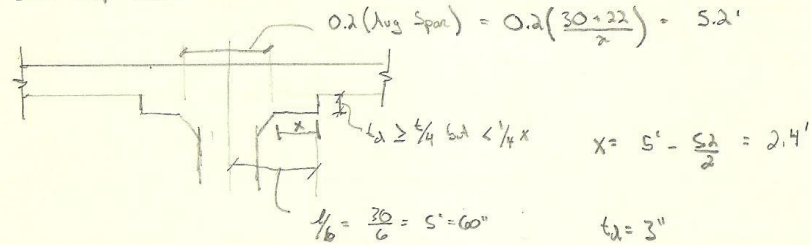 0.2 (Avg Span) = 0.2 (30+22/2) = 5.2'
x
td ≥ t/4 but < 1/4 x
x = 5' - 5.2/2 = 2.4'
l/6 = 30/6 = 5' = 60"
td = 3"